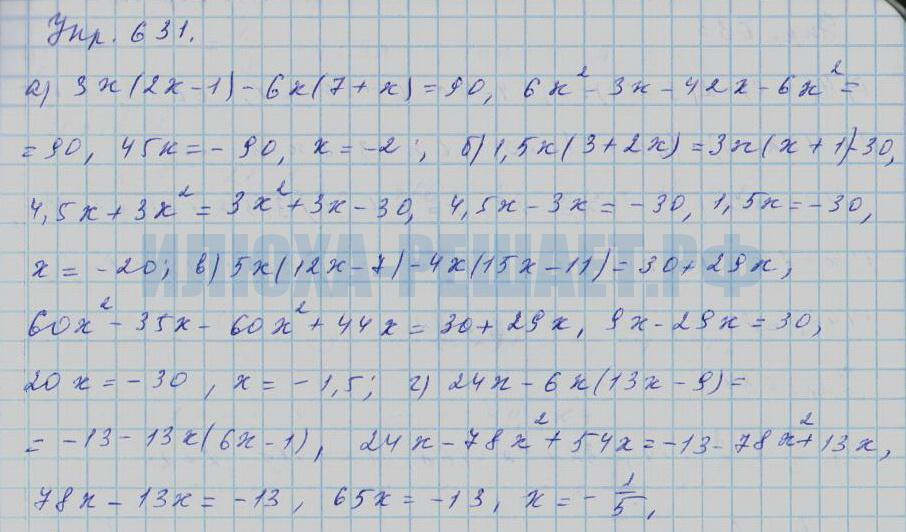 Упр. 631.
а) 3x(2x-1)-6x(7+x)=90, 6x²-3x-42x-6x²=
=90, 45x=-90, x=-2; б) 1,5x(3+2x)=3x(x+1)-30,
4,5x+3x²=3x²+3x-30, 4,5x-3x=-30, 1,5x=-30,
ИЛЮХА-РЕШАЕТ.РФ
x=-20; в) 5x(12x-7)-4x(15x-11)=30+29x,
60x²-35x-60x²+44x=30+29x, 9x-29x=30,
20x=-30, x=-1,5; г) 24x-6x(13x-9)=
=-13-13x(6x-1), 24x-78x²+54x=-13-78x²+13x,
78x-13x=-13, 65x=-13, x=-1/5,